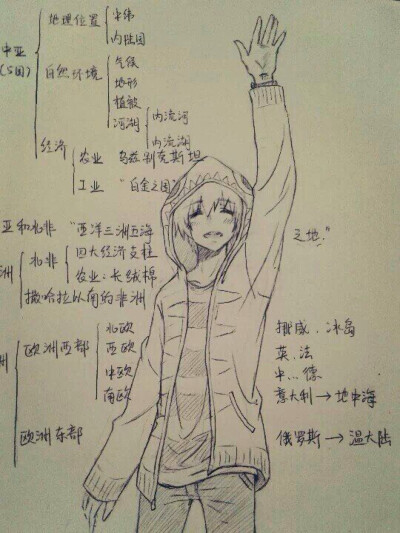 地理位置 中纬
内陆国
中亚
(5国)
自然环境 气候
地形
植被
河湖 内流河
内流湖
经济
农业 乌兹别克斯坦
工业 "白金之国"
亚和北非 "两洋三洲五海 之地."
洲 北非 四大经济支柱
农业:长绒棉
撒哈拉以南的非洲
洲 欧洲西部 北欧 挪威.冰岛
西欧 英.法
中欧 中...德
南欧 意大利→地中海
欧洲东部 俄罗斯→温大陆